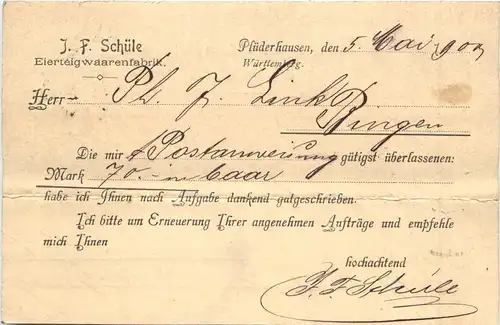 J. F. Schüle
Eierteigwaarenfabrik.
Plüderhausen, den 5. Mai 1900
Württemberg.
Herr Ph. J. Link
Bingen
Die mir p Postanweisung gütigst überlassenen:
Mark 70.- in baar
habe ich Ihnen nach Aufgabe dankend gutgeschrieben.
Ich bitte um Erneuerung Ihrer angenehmen Aufträge und empfehle
mich Ihnen
hochachtend
J. F. Schüle